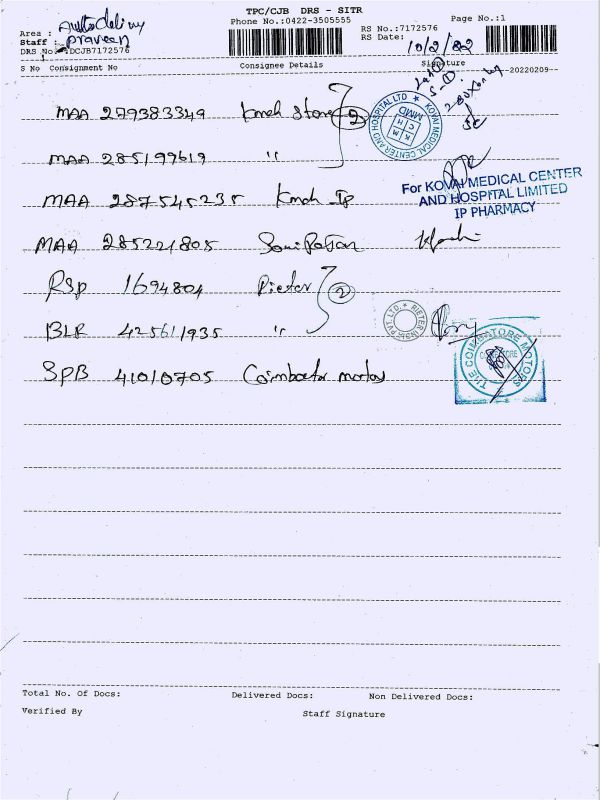 TPC/CJB DRS - SITR
Phone No.:0422-3505555
Page No.:1
Area : Autto delivy
Staff : praveen
RS No.:7172576
DRS No DCJB7172576
RS Date: 10/2/22
S No Consignment No Consignee Details Signature
20220209
MAA 279383349 Kmch Store 2
MAA 285199619 "
KOVAI MEDICAL CENTER AND HOSPITAL LTD
KMCH
MMD
MAA 287545235 Kmch Ip
For KOVAI MEDICAL CENTER
AND HOSPITAL LIMITED
IP PHARMACY
MAA 285221805
RSP 1694804 Pieter 2
BLR 425611935 "
SPB 41010705 Coimbator motors
THE COIMBATORE MOTORS
COIMBATORE
Total No. Of Docs: Delivered Docs: Non Delivered Docs:
Verified By Staff Signature